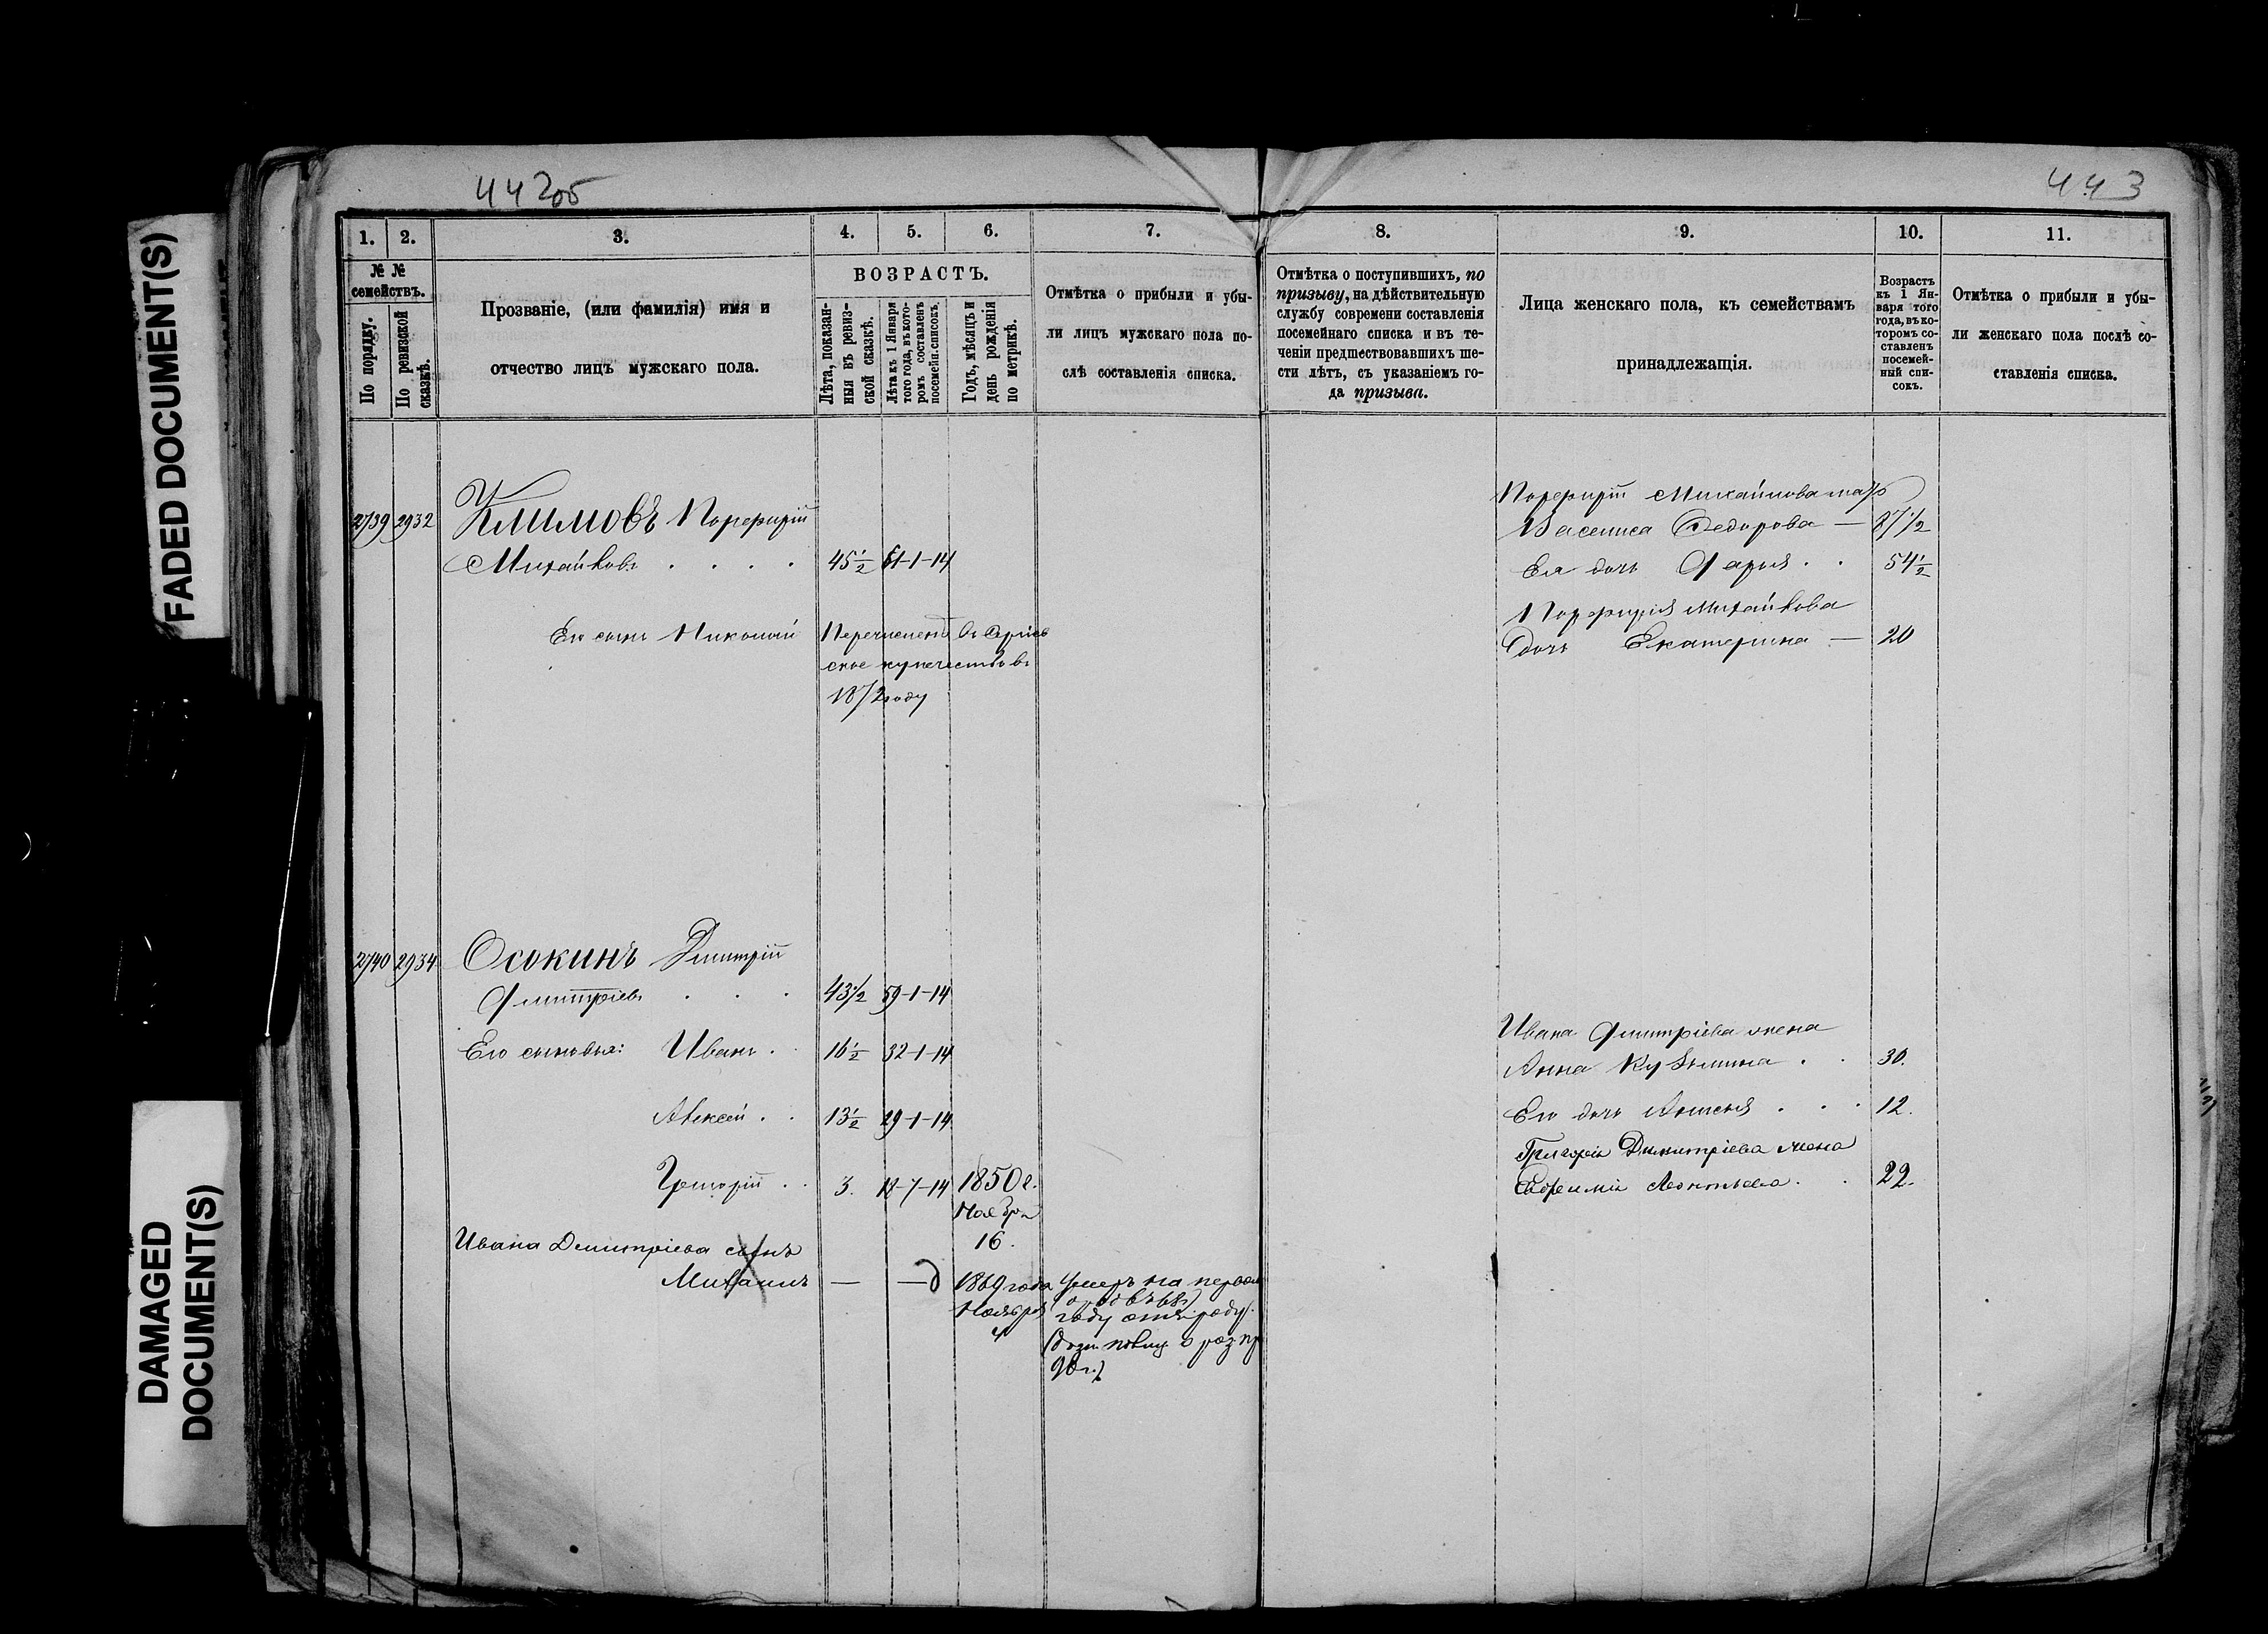 FADED DOCUMENT(S)
DAMAGED
DOCUMENT(S)
442об
443
1.
2.
3.
4.
5.
6.
7.
8.
9.
10.
11.
№ №
семействъ.
По порядку.
По ревизской
сказкѣ.
Прозваніе, (или фамилія) имя и
отчество лицъ мужскаго пола.
ВОЗРАСТЪ.
Лѣта, показан-
ныя въ ревиз-
ской сказкѣ.
Лѣта къ 1 Января
того года, въ кото-
ромъ составленъ
посемейн. списокъ.
Годъ, мѣсяцъ и
день рожденія
по метрикѣ.
Отмѣтка о прибыли и убы-
ли лицъ мужскаго пола по-
слѣ составленія списка.
Отмѣтка о поступившихъ, по
призыву, на дѣйствительную
службу современи составленія
посемейнаго списка и въ те-
ченіи предшествовавшихъ ше-
сти лѣтъ, съ указаніемъ го-
да призыва.
Лица женскаго пола, къ семействамъ
принадлежащія.
Возрастъ
къ 1 Ян-
варя того
года, въ ко-
торомъ со-
ставленъ
посемей-
ный спи-
сокъ.
Отмѣтка о прибыли и убы-
ли женскаго пола послѣ со-
ставленія списка.
2739 2932 Климовъ Порфирій
Михайловъ . . . . 45½ 61-1-14
Его сынъ Николай Перечисленъ въ
ское купечество въ
1872 году
Порфирій Михайлова мать
Васелиса Федорова — 87½
Ея дочь Дарья . . 54½
Порфирія Михайлова
дочь Екатерина — 20
2740 2934 Осокинъ Дмитрій
Дмитріевъ . . . 43½ 59-1-14
Его сыновья: Иванъ . 16½ 32-1-14
Алексѣй . . 13½ 29-1-14
Григорій . . 3. 18-7-14 1850 г.
Ноября
16.
Ивана Димитріева сынъ
Михаилъ — — 1869 года
Ноября
4
Умеръ на первом
году отъ роду
90 г.)
Ивана Дмитріева жена
Анна Кузьмина . . 30.
Его дочь . . . 12.
Григорія Димитріева жена
Евфимія Леонтьева . . 22.